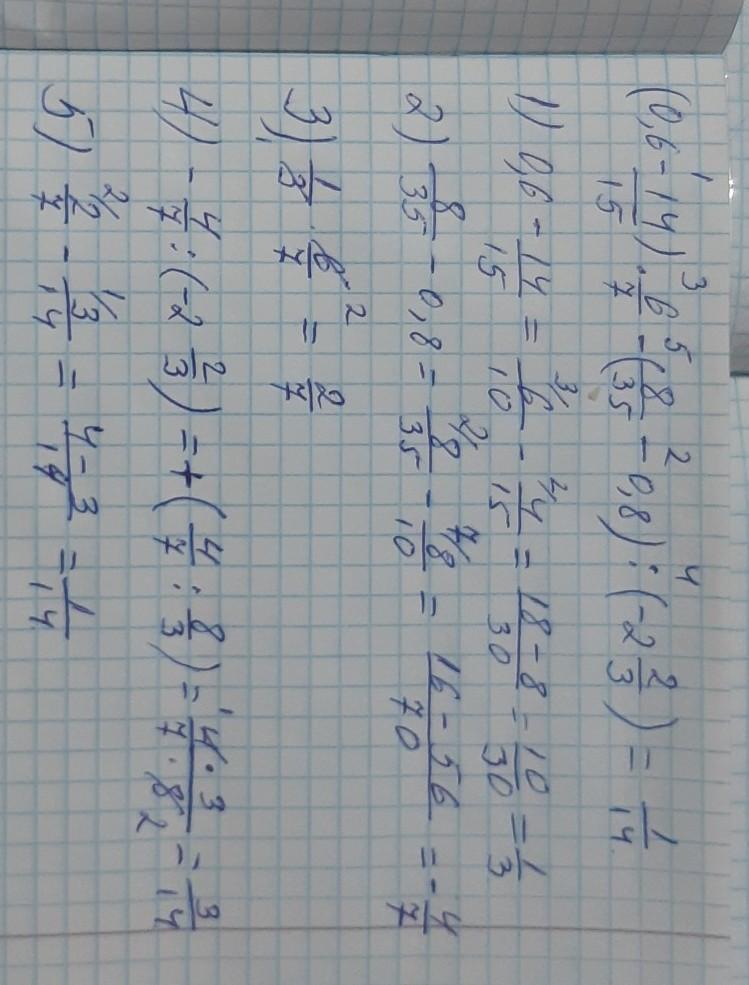 (0,6 - 14/15) · 6/7 - (8/35 - 0,8) : (-2 2/3) = 1/14
1) 0,6 - 14/15 = 6/10 - 4/15 = 18-8/30 = 10/30 = 1/3
2) 8/35 - 0,8 = 8/35 - 8/10 = 16-56/70 = -4/7
3) 1/3 · 6/7 = 2/7
4) -4/7 : (-2 2/3) = +(4/7 : 8/3) = 4·3/7·8 = 3/14
5) 2/7 - 3/14 = 4-3/14 = 1/14